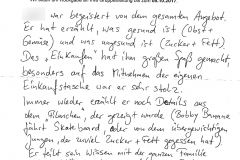 ... war begeistert von dem gesamten Angebot.
Er hat erzählt, was gesund ist (Obst +
Gemüse) und was ungesund ist (Zucker + Fett)
Das "Einkaufen" hat ihm großen Spaß gemacht,
besonders auf das Mitnehmen der eigenen
Einkaufstasche war er sehr stolz.
Immer wieder erzählt er noch Details aus
dem Filmchen, der gezeigt wurde (Bobby Banane
fährt Skateboard oder von dem übergewichtigen
Jungen der zuviel Zucker + Fett gegessen hat)
Er teilt sein Wissen mit der ganzen Familie